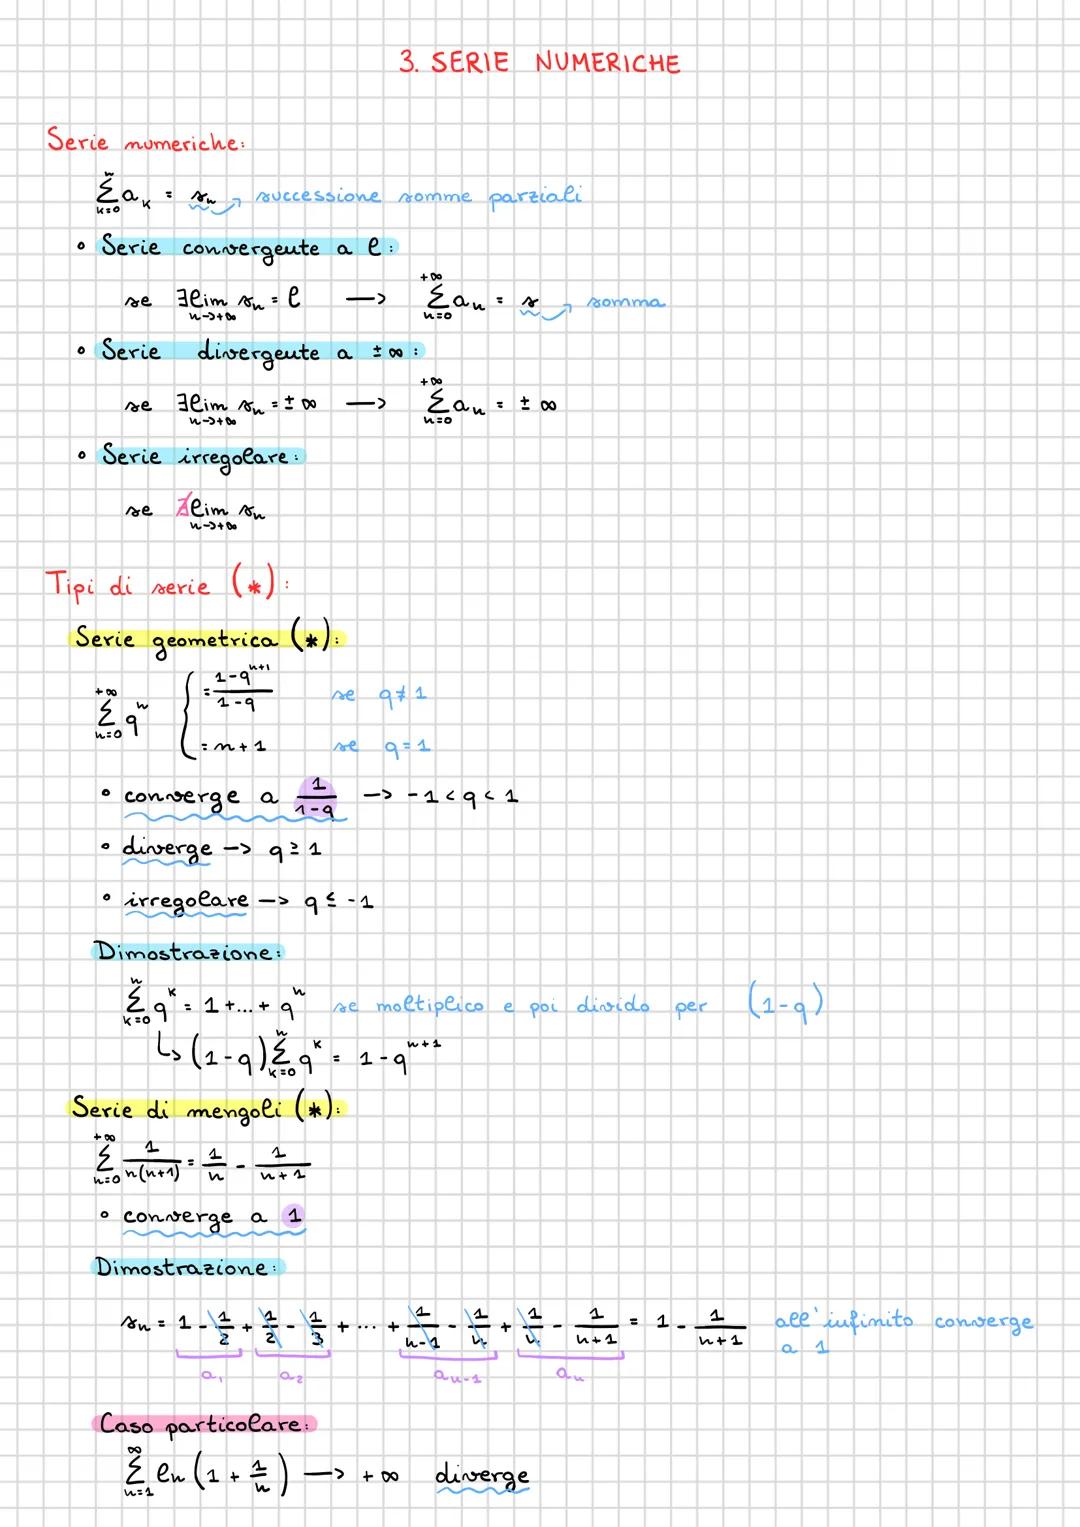 3. SERIE NUMERICHE
Serie numeriche:
n∑k=0 aₖ = sₙ → successione somme parziali
• Serie convergente a ℓ:
se ∃lim n->+∞ sₙ = ℓ —> +∞∑n=0 aₙ = s → somma
• Serie divergente a ±∞:
se ∃lim n->+∞ sₙ = ±∞ —> +∞∑n=0 aₙ = ±∞
• Serie irregolare:
se ∄lim n->+∞ sₙ
Tipi di serie (*):
Serie geometrica (*):
+∞∑n=0 qⁿ { = (1-qⁿ⁺¹)/(1-q) se q≠1
= n+1 se q=1
• converge a 1/(1-q) —> -1<q<1
• diverge —> q≥1
• irregolare —> q≤-1
Dimostrazione:
n∑k=0 qᵏ = 1+...+qⁿ se moltiplico e poi divido per (1-q)
↳ (1-q) n∑k=0 qᵏ = 1-qⁿ⁺¹
Serie di mengoli (*):
+∞∑n=0 1/(n(n+1)) = 1/n - 1/(n+1)
• converge a 1
Dimostrazione:
sₙ = 1 - 1/2 + 1/2 - 1/3 + ... + 1/(n-1) - 1/n + 1/n - 1/(n+1) = 1 - 1/(n+1) all'infinito converge
a 1
a₁ a₂ aₙ₋₁ aₙ
Caso particolare:
∞∑n=1 ln(1 + 1/n) —> +∞ diverge